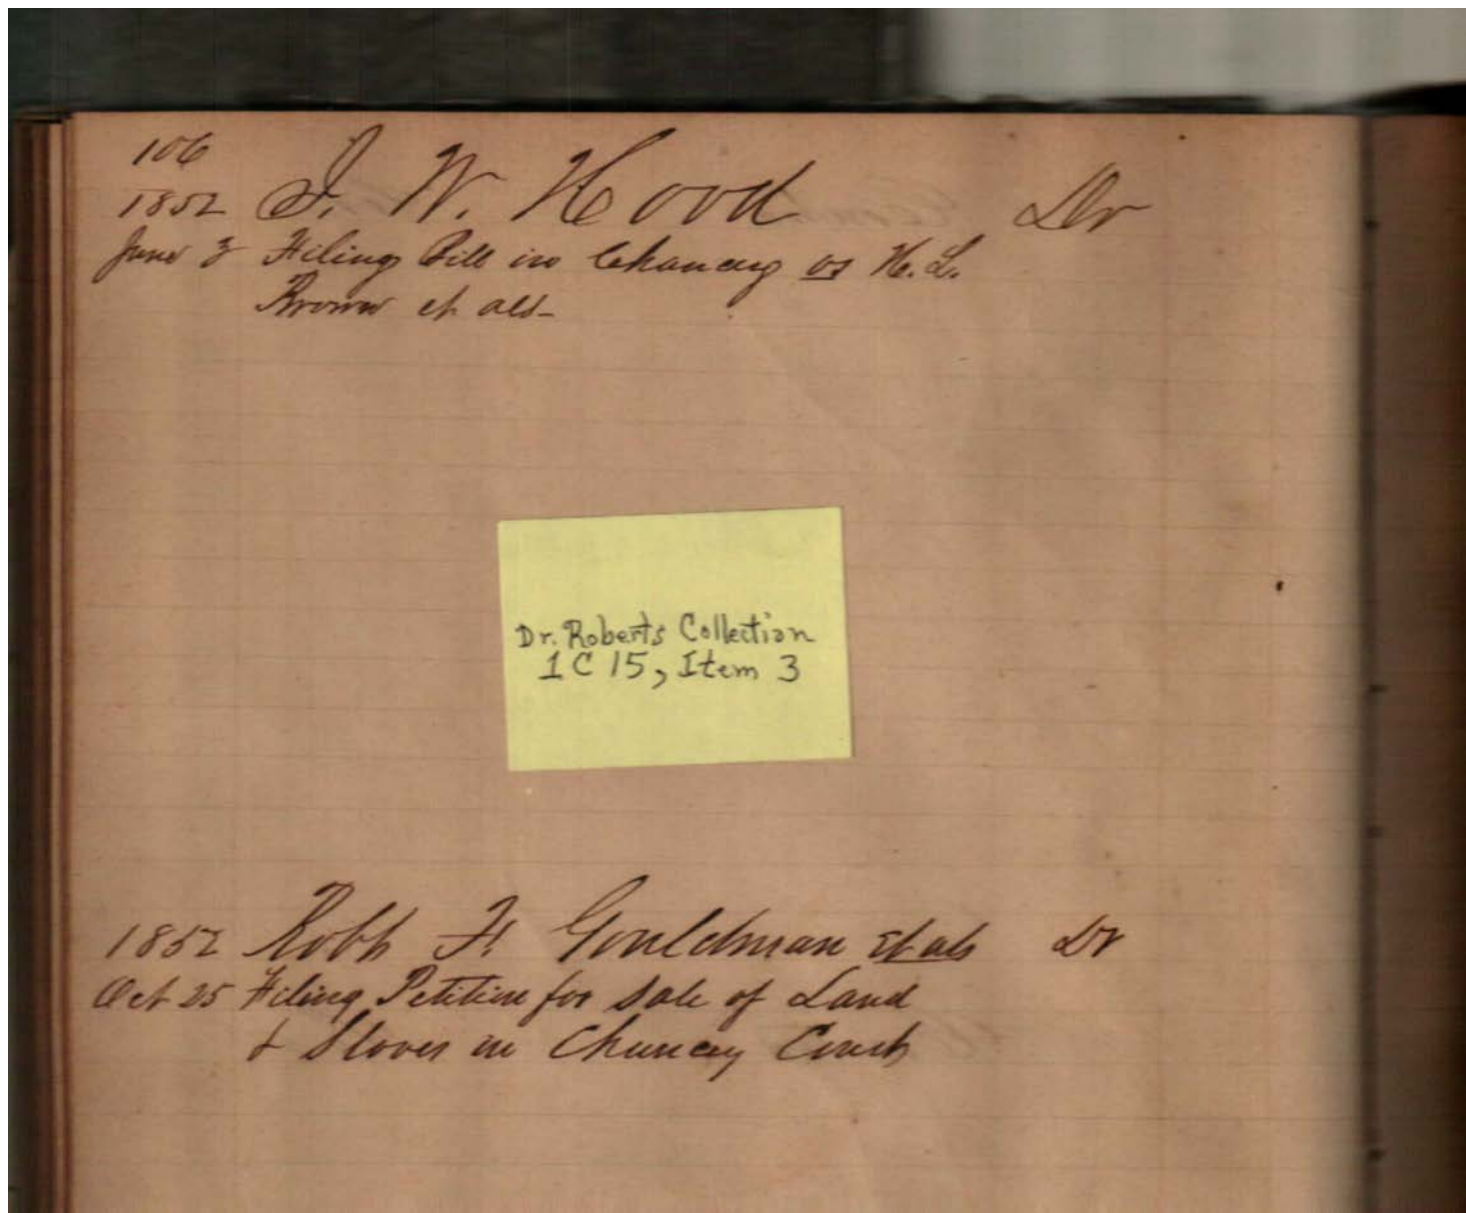 106
1852 J. W. Hood Dr
June 3 Filing Bill in Chancery vs H. L.
Brown et als-
Dr. Roberts Collection
1 C 15, Item 3
1852 Robt F. Gouldman et als Dr
Oct 25 Filing Petition for Sale of Land
& Slaves in Chancery Court